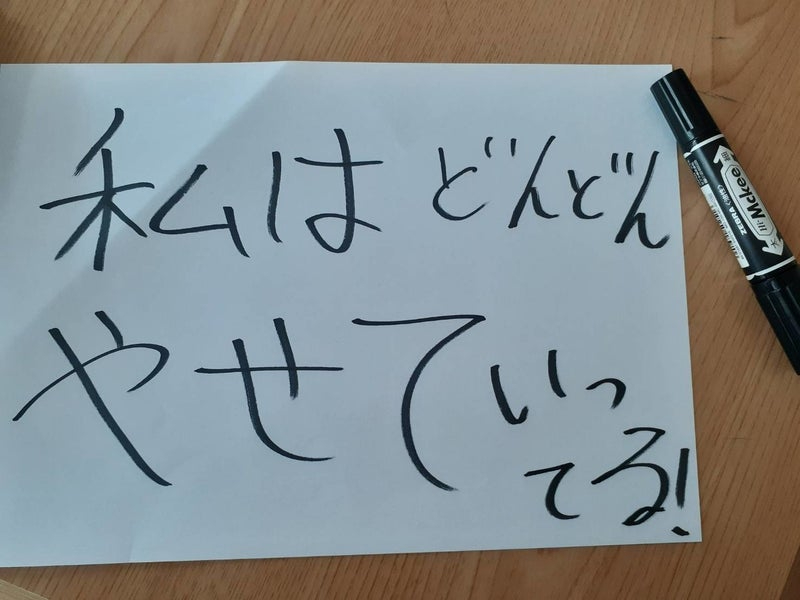 私はどんどん
やせていっ
てる!
Mckee
ZEBRA